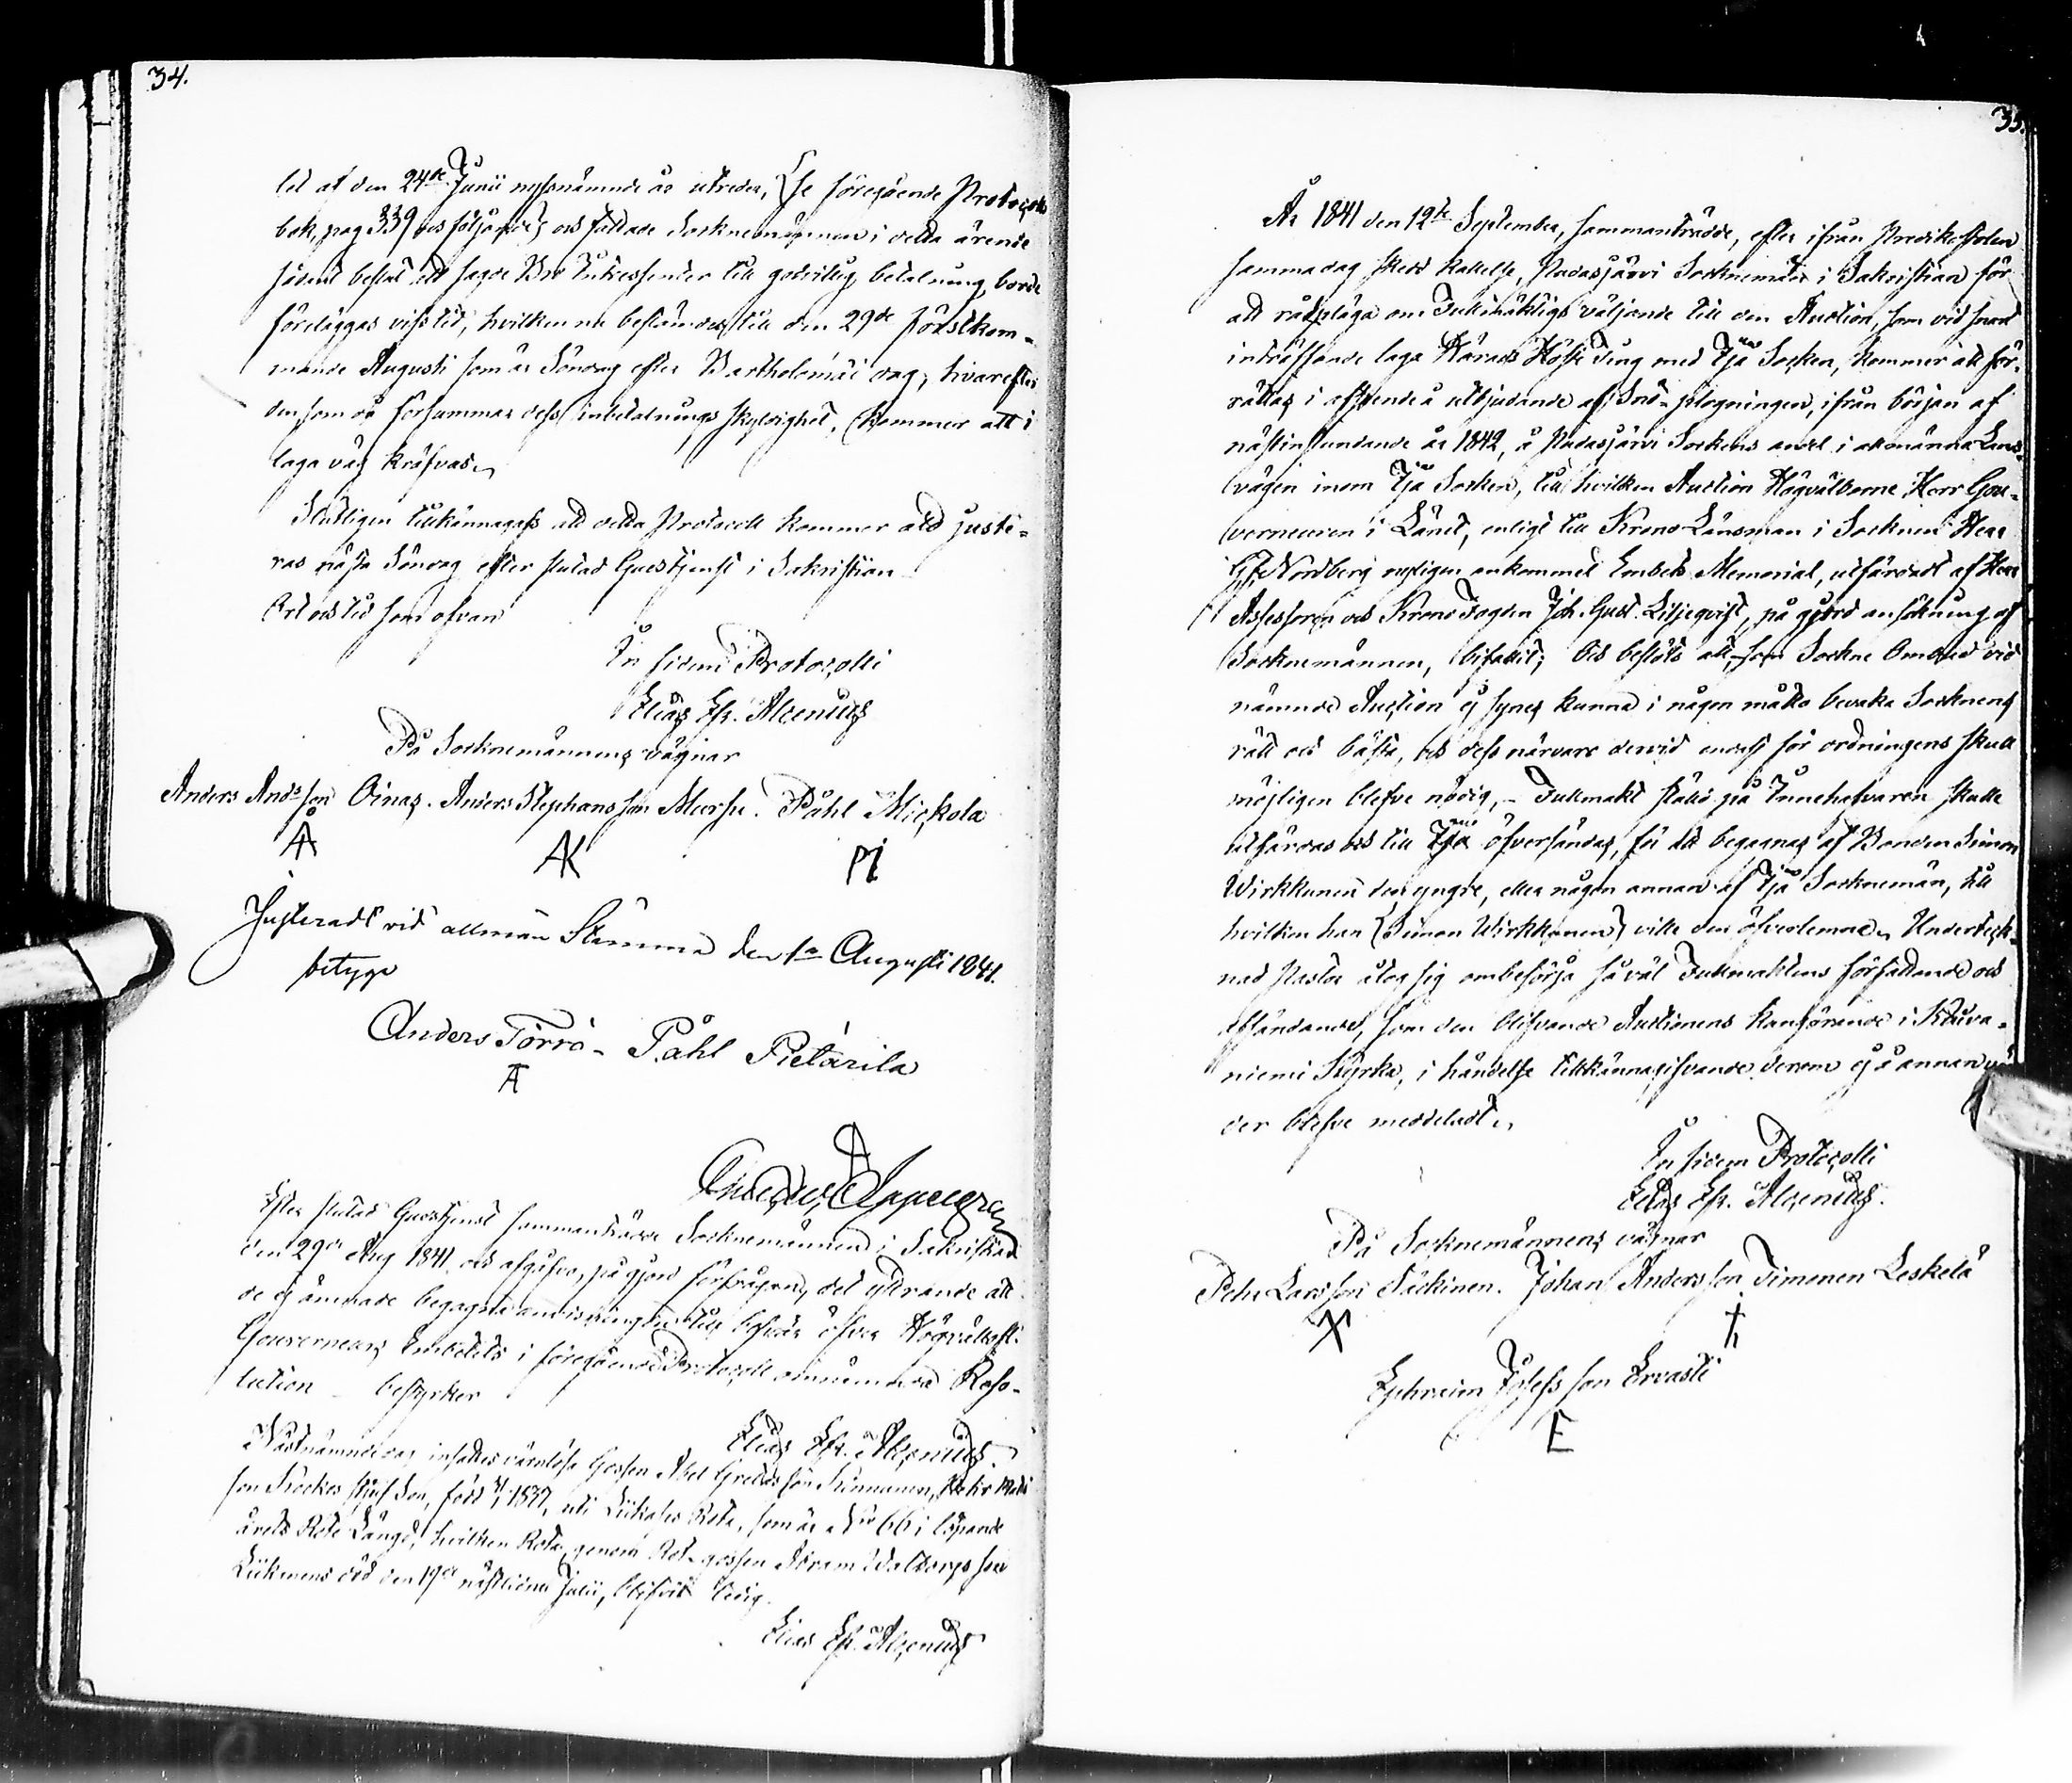 34.
let af den 24de Junii nyssnämnde år utredes, (se föregående Protocolls
bok, pag 339 och följande) och fattade Socknemännen i detta ärende
sådant beslut att sagde Intressenter till godvillig betalning, borde
föreläggas viss tid, hvilken nu bestämdes till den 29de förstkom-
mande Augusti som är Söndag efter Bartholomäi dag, hvarefter
den som då försummar dess inbetalnings skyldighet, kommer att i
laga väg kräfvas.
Slutligen tillkännagafs att detta Protocoll kommer att juste-
ras nästa Söndag efter slutad Gudstjenst i Sakristian
Ort och tid som ofvan
In fidem Protocolli
Elias Efr. Alcenius
På Socknemännens vägnar
Anders Andsson Oinas. Anders Stephansson Påhl Mickola
Å AK PM
Justeradt vid allmän Stämma den 1a Augusti 1841.
betyga
Anders Törrö - Påhl Pietarila
A
A
Efter slutad Gudstjenst sammanträdde Socknemännen i Sakristian
den 29de Aug 1841. och afgåfvo, på gjord förfrågan, det yttrande att
de ej ämnade begagna till besvär öfver Högvällofl.
Gouverneurs Embetets i föregående Protocoll omnämnda Reso-
lution bestyrker
Elias Efr. Alcenius.
Nästnämnde dag insattes värnlösa Gossen Abel Kinnunen, Petr Mats
son styfson, född 1837, uti Rota, som är No 66 i löpande
årets Rote Längd, hvilken Rota genom Rot-gossen Abram
död den 19de nästledne Julii, blifvit ledig.
Elias Ef. Alcenius
35.
År 1841 den 12te September, sammanträdde, efter ifrån Predikostolen
samma dag skedd kallelse, Pudasjärvi Socknemän i Sakristian för
att rådpläga om Fullmäktigs väljande till den Auction, som vid snart
inträffande laga Härads Höste Ting med Ijå Socken, kommer att för-
rättas i afseende å utbjudande af Snö-plogningen, ifrån början af
nästinstundande år 1842, å Pudasjärvi Sockens andel i allmänna Lands-
vägen inom Ijå Socken, till hvilken Auction Högvälborne Herr Gou-
verneuren i Länet, enligt till Krono Länsman i Socknen Herr
Nordberg nyligen ankommet Embets Memorial, utfärdadt af Herr
Assessoren och Krono Fogden Joh. Gust. Liljeqvist, på gjord ansökning af
Socknemännen, bifallit; Och beslöts att, som Sockne Ombud vid
nämnde Auction ej synes kunna i någon måtto bevaka Socknens
rätt och bästa, och dess närvaro dervid endast för ordningens skull
möjligen blefve nödig, - Fullmakt ställd på Innehafvaren skulle
utfärdas och till Ijå öfversändas, för att begagnas af Bonden Simon
Wirkkunen den yngre, eller någon annan af Ijå Socknemän, till
hvilken han (Simon Wirkkunen) ville den öfverlemna. Underteck-
nad Pastor åtog sig ombesörja såväl Fullmaktens författande och
afsändande, som den blifvande Auctionens kungörande i Kuiva-
niemi Kyrka, i händelse tillkännagifvande derom ej å annan
der blefve meddeladt.
In fidem Protocolli
Elias Efr. Alcenius.
På Socknemännens vägnar
Petr Larsson Johan Andersson Timonen Leskelä
X
Ephraim Josefsson Ervasti
E